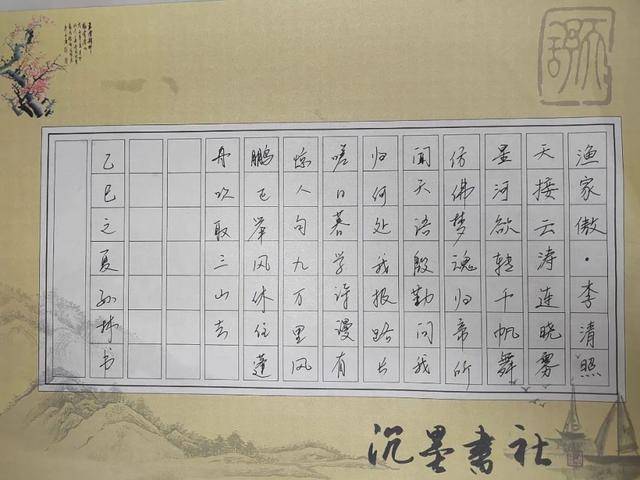 渔家傲·李清照
天接云涛连晓雾
星河欲转千帆舞
仿佛梦魂归帝所
闻天语殷勤问我
归何处我报路长
嗟日暮学诗漫有
惊人句九万里风
鹏正举风休住蓬
舟吹取三山去
乙巳之夏孙林书
沉墨書社